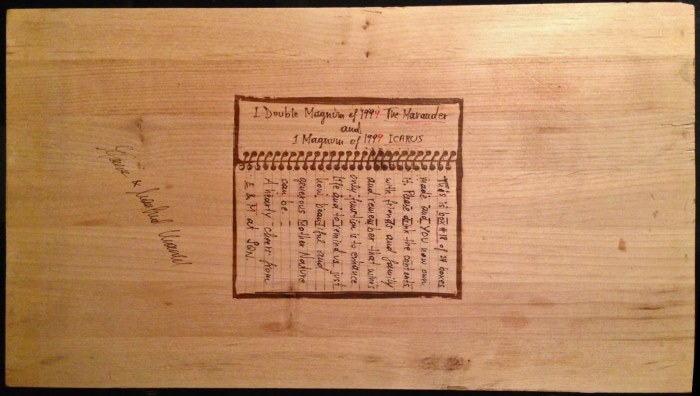 1 Double Magnum of 1994 The Marauder
and
1 Magnum of 1994 ICARUS
This is box # of boxes
made and YOU now own
it. Please drink the contents
with friends and family
and remember that wine's
only function is to enhance
life and to remind us just
how beautiful and
generous Mother Nature
can be.
A hearty cheers from
E & M at SQN.